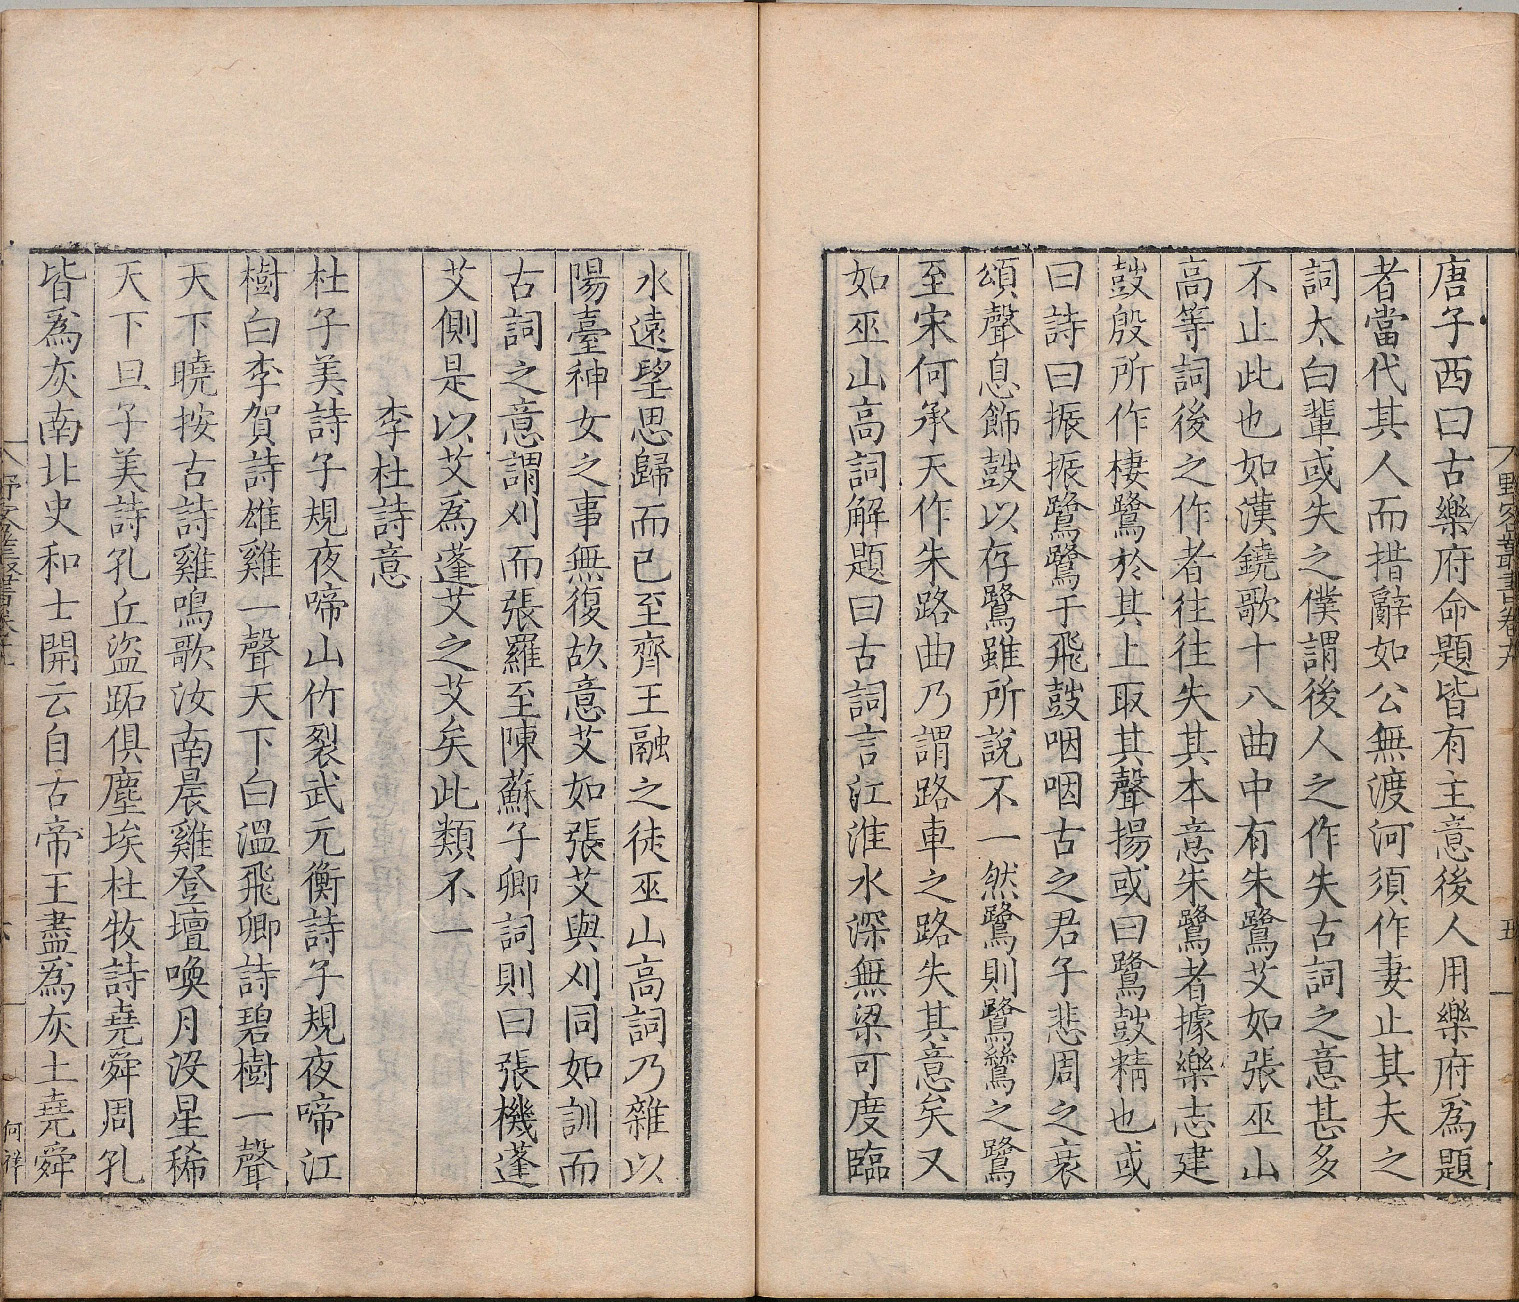 唐子西曰古樂府命題皆有主意後人用樂府爲題
者當代其人而措辭如公無渡河須作妻止其夫之
詞太白輩或失之僕謂後人之作失古詞之意甚多
不止此也如漢鐃歌十八曲中有朱鷺艾如張巫山
高等詞後之作者往往失其本意朱鷺者據樂志建
鼓殷所作棲鷺於其上取其聲揚或曰鷺鼓精也或
曰詩曰振振鷺鷺于飛鼓咽咽古之君子悲周之衰
頌聲息飾鼓以存鷺雖所說不一然鷺則鷺鷥之鷺
至宋何承天作朱路曲乃謂路車之路失其意矣又
如巫山高詞解題曰古詞言江淮水深無梁可度臨
水遠望思歸而已至齊王融之徒巫山高詞乃雜以
陽臺神女之事無復故意艾如張艾與刈同如訓而
古詞之意謂刈而張羅至陳蘇子卿詞則曰張機蓬
艾側是以艾爲蓬艾之艾矣此類不一
李杜詩意
杜子美詩子規夜啼山竹裂武元衡詩子規夜啼江
樹白李賀詩雄雞一聲天下白溫飛卿詩碧樹一聲
天下曉按古詩雞鳴歌汝南晨雞登壇喚月沒星稀
天下旦子美詩孔丘盜跖俱塵埃杜牧詩堯舜周孔
皆爲灰南北史和士開云自古帝王盡爲灰土堯舜
野客叢書卷十九
五
何祥